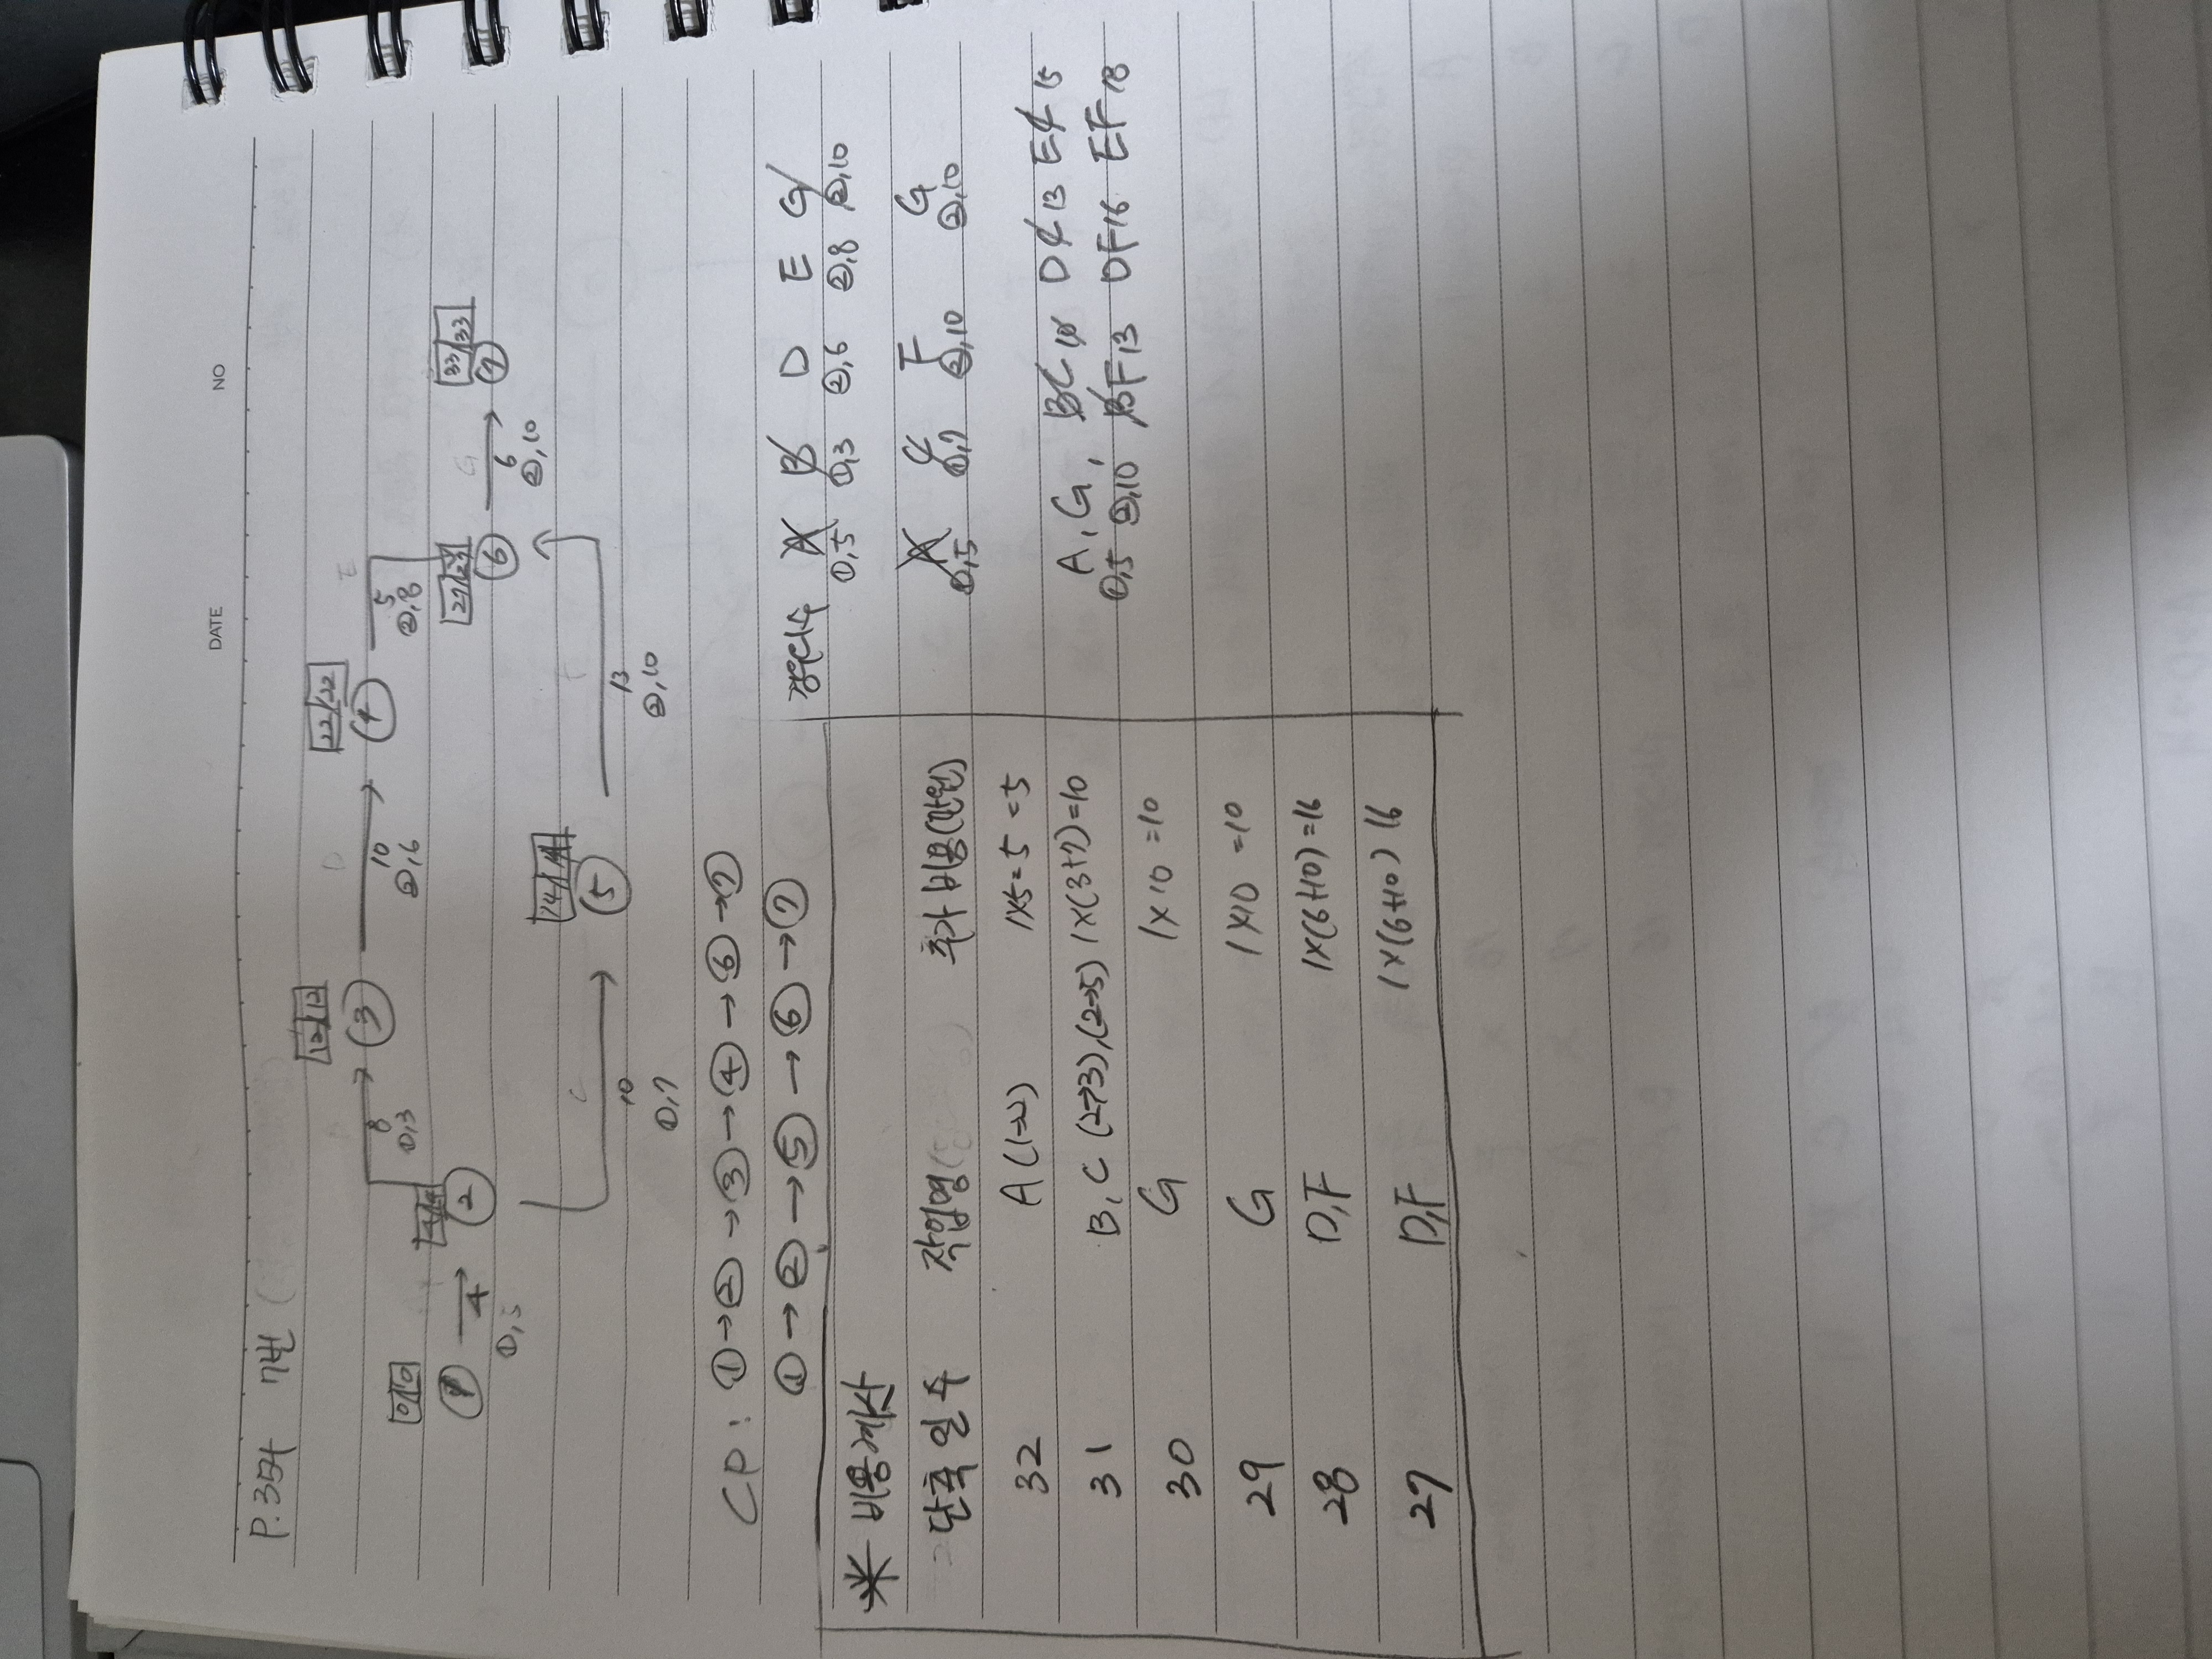 DATE NO
P.354 7번
0 0 4 4 12 12 22 22 27 27 33 33
① → ② → ③ → ④ ⑥ → ⑦
4 8 10 5 6
①,5 ①,3 ②,6 ②,8 ②,10
D E G
14 14
⑤
10 13
①,7 ②,10
CP : ①→②→③→④→⑥→⑦
①→②→⑤→⑥→⑦
경우의수 A B D E G
①,5 ①,3 ②,6 ②,8 ②,10
A C F G
①,5 ①,7 ②,10 ②,10
A, G, BC 10 DC 13 EC 15
①,5 ②,10 BF 13 DF 16 EF 18
* 비용계산
단축일수 작업명 추가비용(만원)
32 A (1→2) 1x5=5 =5
31 B, C (2→3),(2→5) 1x(3+7)=10
30 G 1x10 =10
29 G 1x10 =10
28 D,F 1x(6+10)=16
27 D,F 1x(6+10) 16